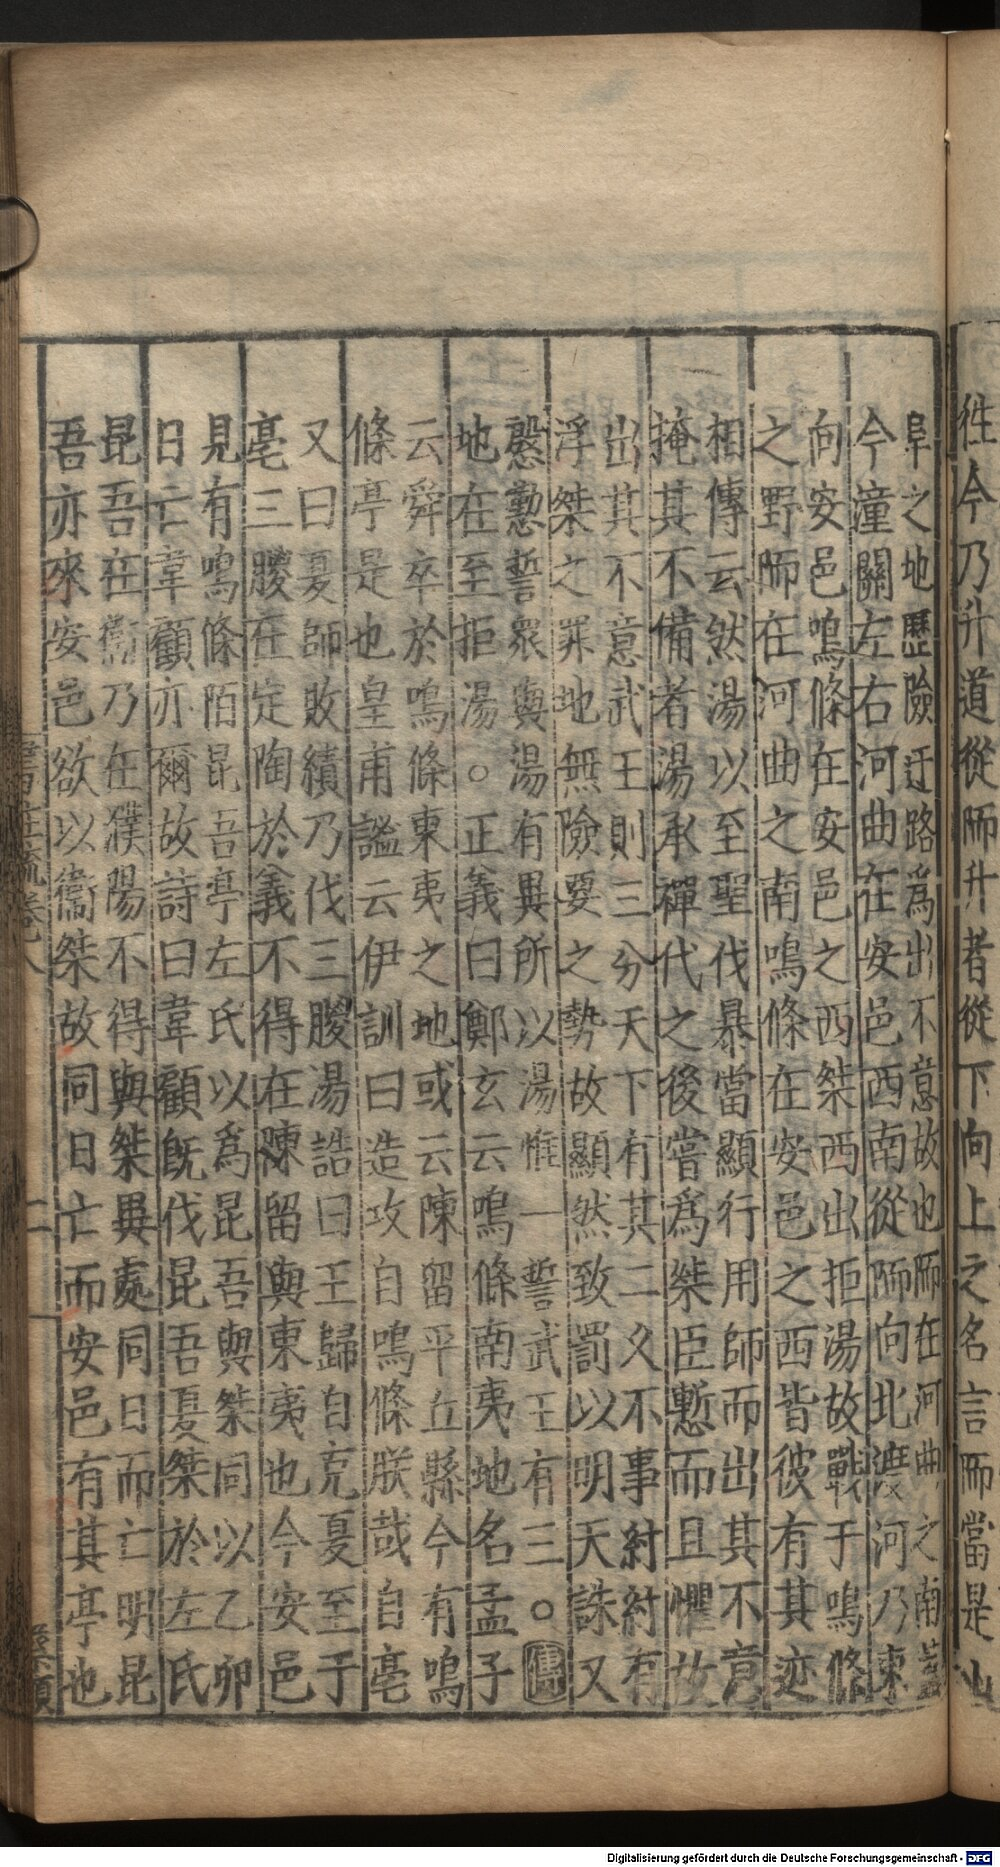 徃今乃升道從陑升者從下向上之名言陑當是山
阜之地歷險迂路爲出不意故也陑在河曲之南蓋
今潼關左右河曲在安邑西南從陑向北渡河乃東
向安邑鳴條在安邑之西桀西出拒湯故戰于鳴條
之野陑在河曲之南鳴條在安邑之西皆彼有其迹
相傳云然湯以至聖伐暴當顯行用師而出其不意
掩其不備者湯承禪代之後嘗爲桀臣慙而且懼故
出其不意武王則三分天下有其二久不事紂紂有
浮桀之罪地無險要之勢故顯然致罰以明天誅又
慇懃誓衆與湯有異所以湯惟一誓武王有三○傳
地在至拒湯○正義曰鄭玄云鳴條南夷地名孟子
云舜卒於鳴條東夷之地或云陳留平丘縣今有鳴
條亭是也皇甫謐云伊訓曰造攻自鳴條朕哉自亳
又曰夏師敗績乃伐三朡湯誥曰王歸自克夏至于
亳三朡在定陶於義不得在陳留與東夷也今安邑
見有鳴條陌昆吾亭左氏以爲昆吾與桀同以乙卯
日亡韋顧亦爾故詩曰韋顧旣伐昆吾夏桀於左氏
昆吾在衞乃在濮陽不得與桀異處同日而亡明昆
吾亦來安邑欲以衞桀故同日亡而安邑有其亭也
Digitalisierung gefördert durch die Deutsche Forschungsgemeinschaft - DFG